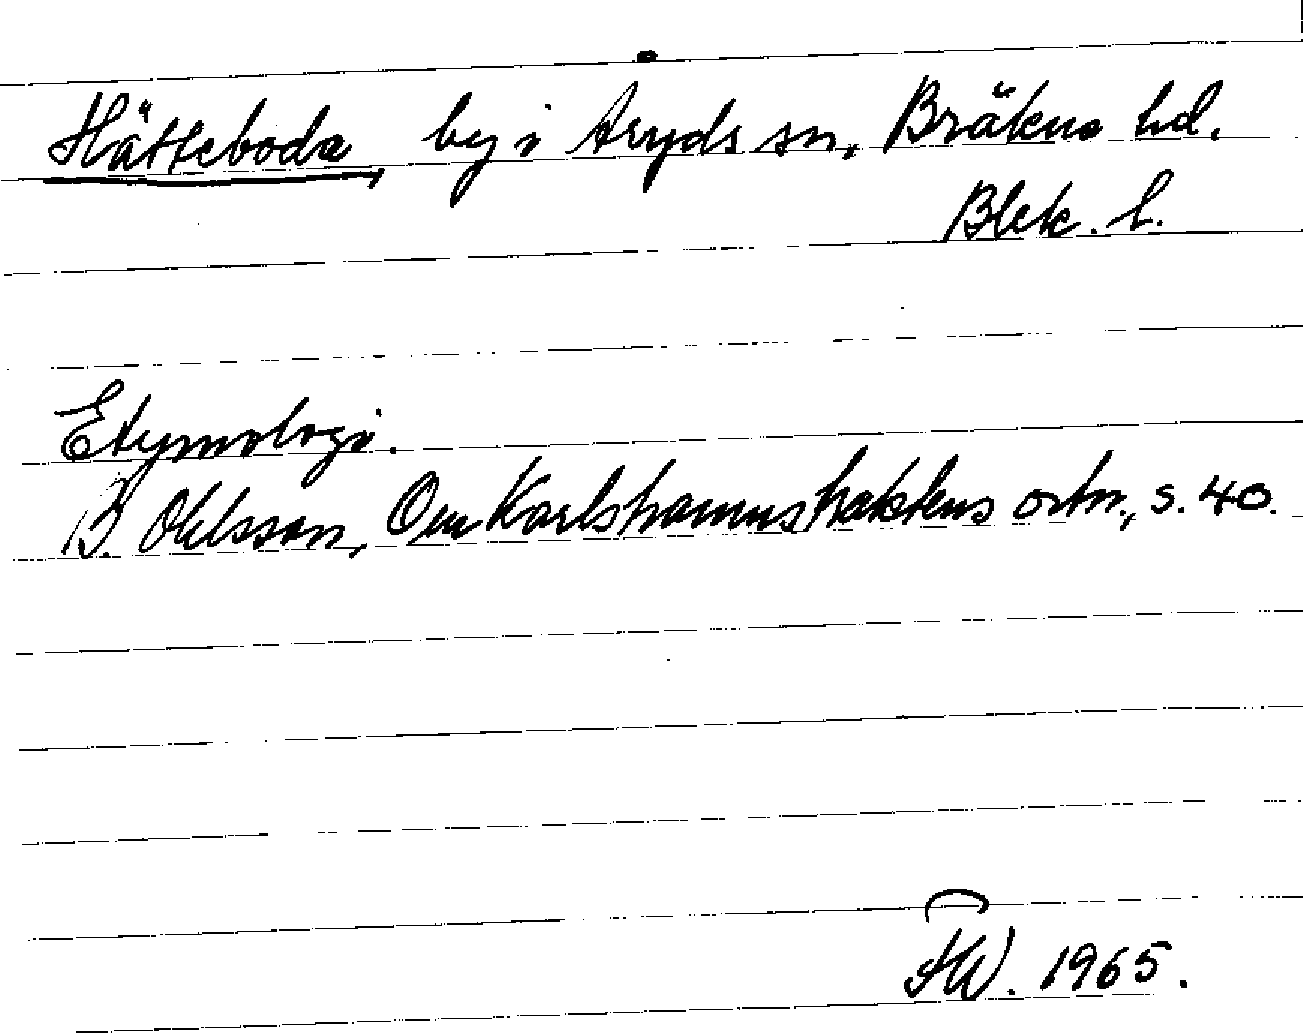 Hätteboda, by i Åryds sn, Bräkne hd.
Blek. l.
Etymologi.
B. Ohlsson, Om Karlshamnstraktens ortn., s. 40.
1965.